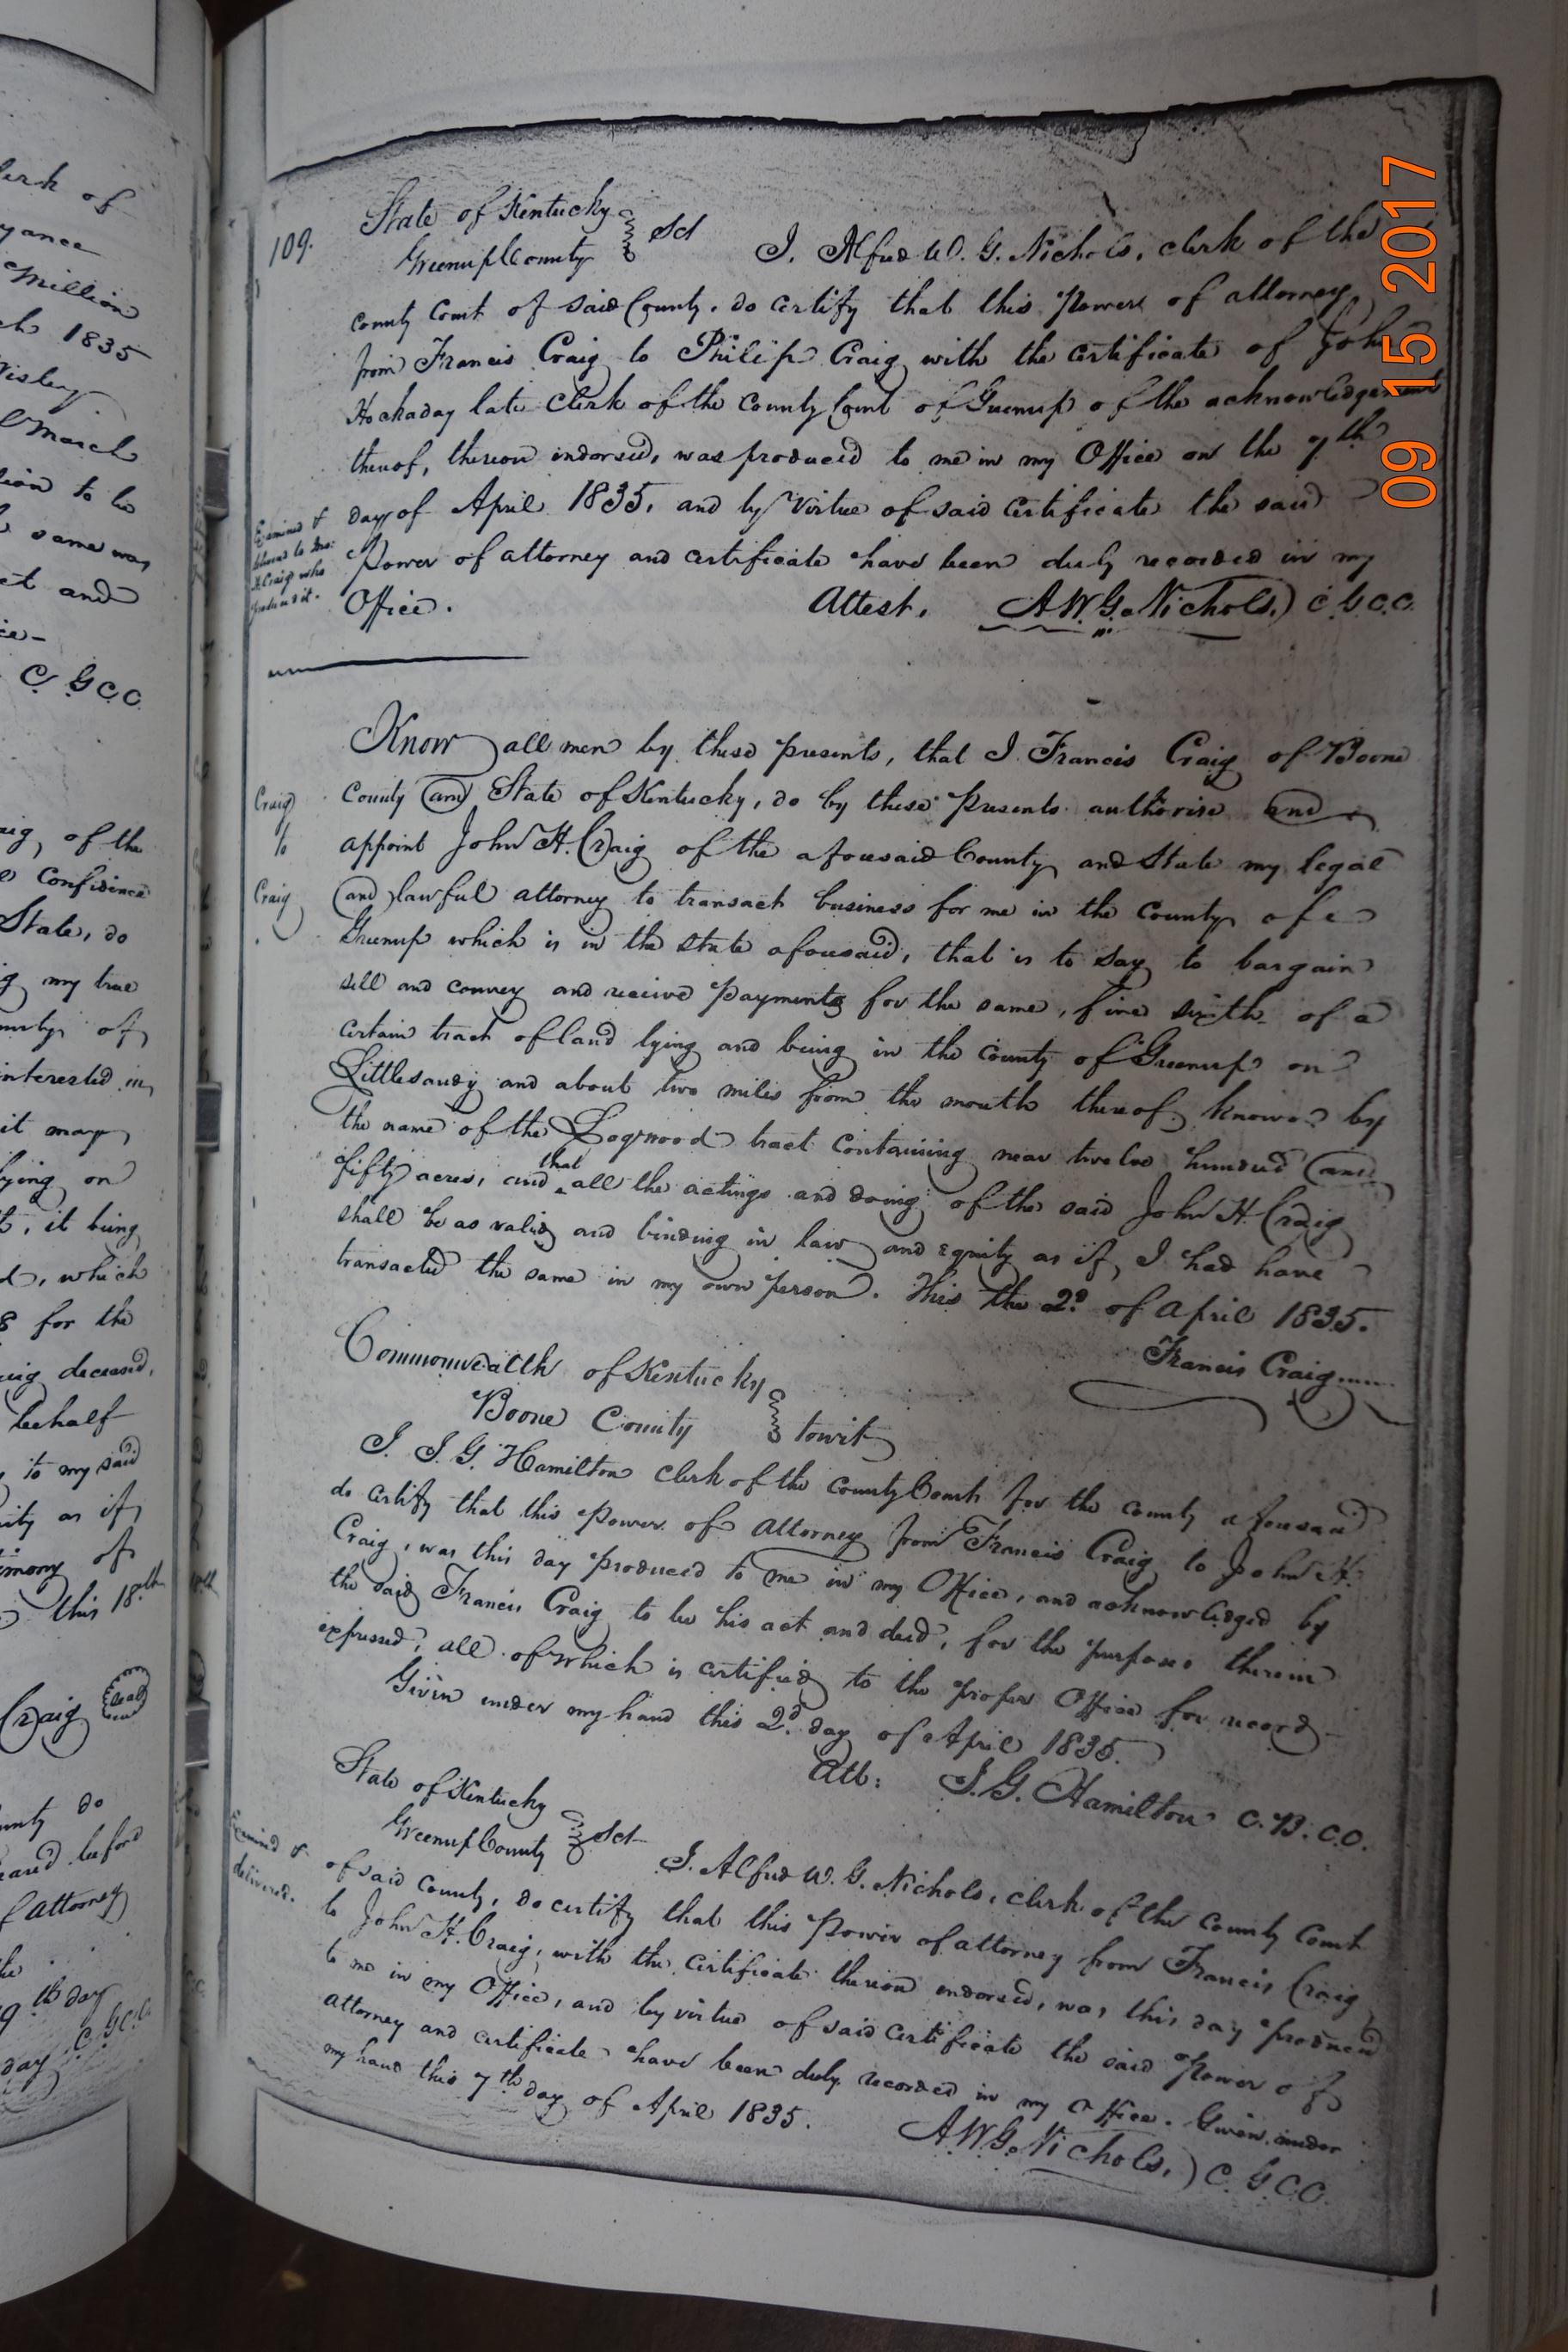 lerk of
Million
ch 1835
March
same was
and
C. G C.C.
aig, of the
Confidence
State, do
my true
of
interested in
it may
lying on
it being
which
for the
aig deceased,
behalf
to my said
as if
of
this 18th
Craig Seal
do
before
f attorney
9th day
day C. G C.C.
109.
State of Kentucky
Greenup County } Sct
I. Alfred W. G. Nichols, clerk of the
county Court of said County, do certify that this Power of attorney
from Francis Craig to Philip Craig with the certificate of John
Hockaday late Clerk of the County Court of Greenup of the acknowledgement
thereof, thereon indorsed, was produced to me in my Office on the 7th
day of April 1835, and by Virtue of said certificate the said
Power of attorney and certificate have been duly recorded in my
Office. Attest. A.W.G. Nichols, C.G.C.C.
Examined &
Craig who
produced it.
Know all men by these presents, that I Francis Craig of Boone
County and State of Kentucky, do by these presents authorise and
appoint John H. Craig of the aforesaid County and State my legal
and lawful attorney to transact business for me in the County of
Greenup which is in the state aforesaid, that is to say to bargain
sell and convey and receive payments for the same, five sixth of a
certain tract of land lying and being in the county of Greenup on
Littlesandy and about two miles from the mouth thereof known by
the name of the Logwood tract containing near twelve hundred and
fifty acres, and that all the actings and doing of the said John H. Craig
shall be as valid and binding in law and equity as if I had have
transacted the same in my own person. This the 2d of April 1835.
Francis Craig
Craig
to
Craig
Commonwealth of Kentucky
Boone County } towit
I. J. G. Hamilton clerk of the county Court for the county aforesaid
do certify that this Power of Attorney from Francis Craig to John H.
Craig, was this day produced to me in my Office, and acknowledged by
the said Francis Craig to be his act and deed, for the purposes therein
expressed, all of which is certified to the proper Office for record
Given under my hand this 2d day of April 1835.
Att: J. G. Hamilton C.B.C.C.
State of Kentucky
Greenup County } Sct
I. Alfred W. G. Nichols, clerk of the County Court
of said County, do certify that this Power of attorney from Francis Craig
to John H. Craig, with the certificate thereon endorsed, was this day produced
to me in my Office, and by virtue of said certificate the said Power of
attorney and certificate have been duly recorded in my Office. Given under
my hand this 7th day of April 1835.
A.W.G. Nichols, C.G.C.C.
Examined &
delivered.
09 15 2017